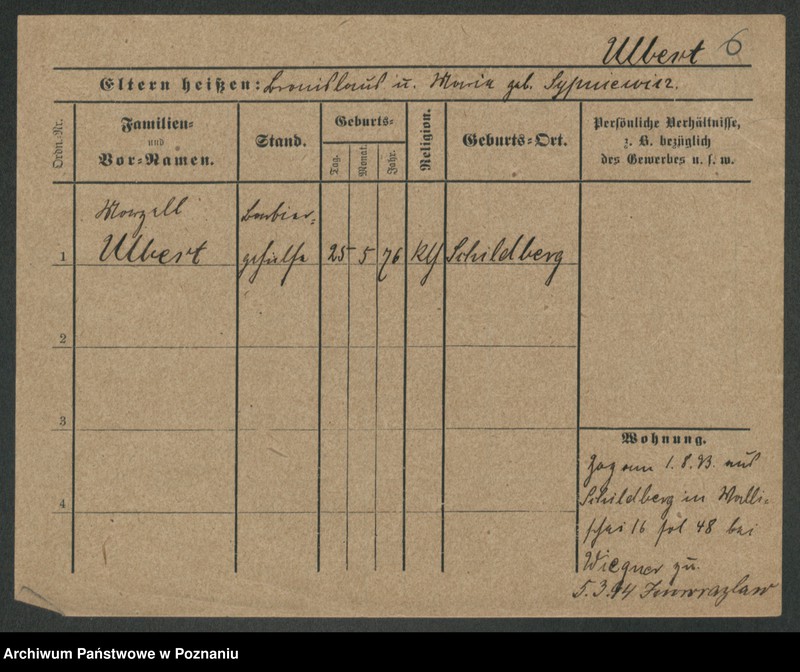 Ulbert 6
Eltern heißen: Bronislaus u. Maria geb. Sypniewicz.
Ordn.-Nr.
Familien-
und
Vor-Namen.
Stand.
Geburts-
Tag.
Monat.
Jahr.
Religion.
Geburts-Ort.
Persönliche Verhältnisse,
z. B. bezüglich
des Gewerbes u. s. w.
Marzell Barbier-
1 Ulbert gehülfe 25 5 76 Schildberg
2
3
4
Wohnung.
Zog am 1.8.93. aus
Schildberg in Walli-
schei 16 48 bei
Wiegner zu.
5.3.94 Inowrazlaw
Archiwum Państwowe w Poznaniu